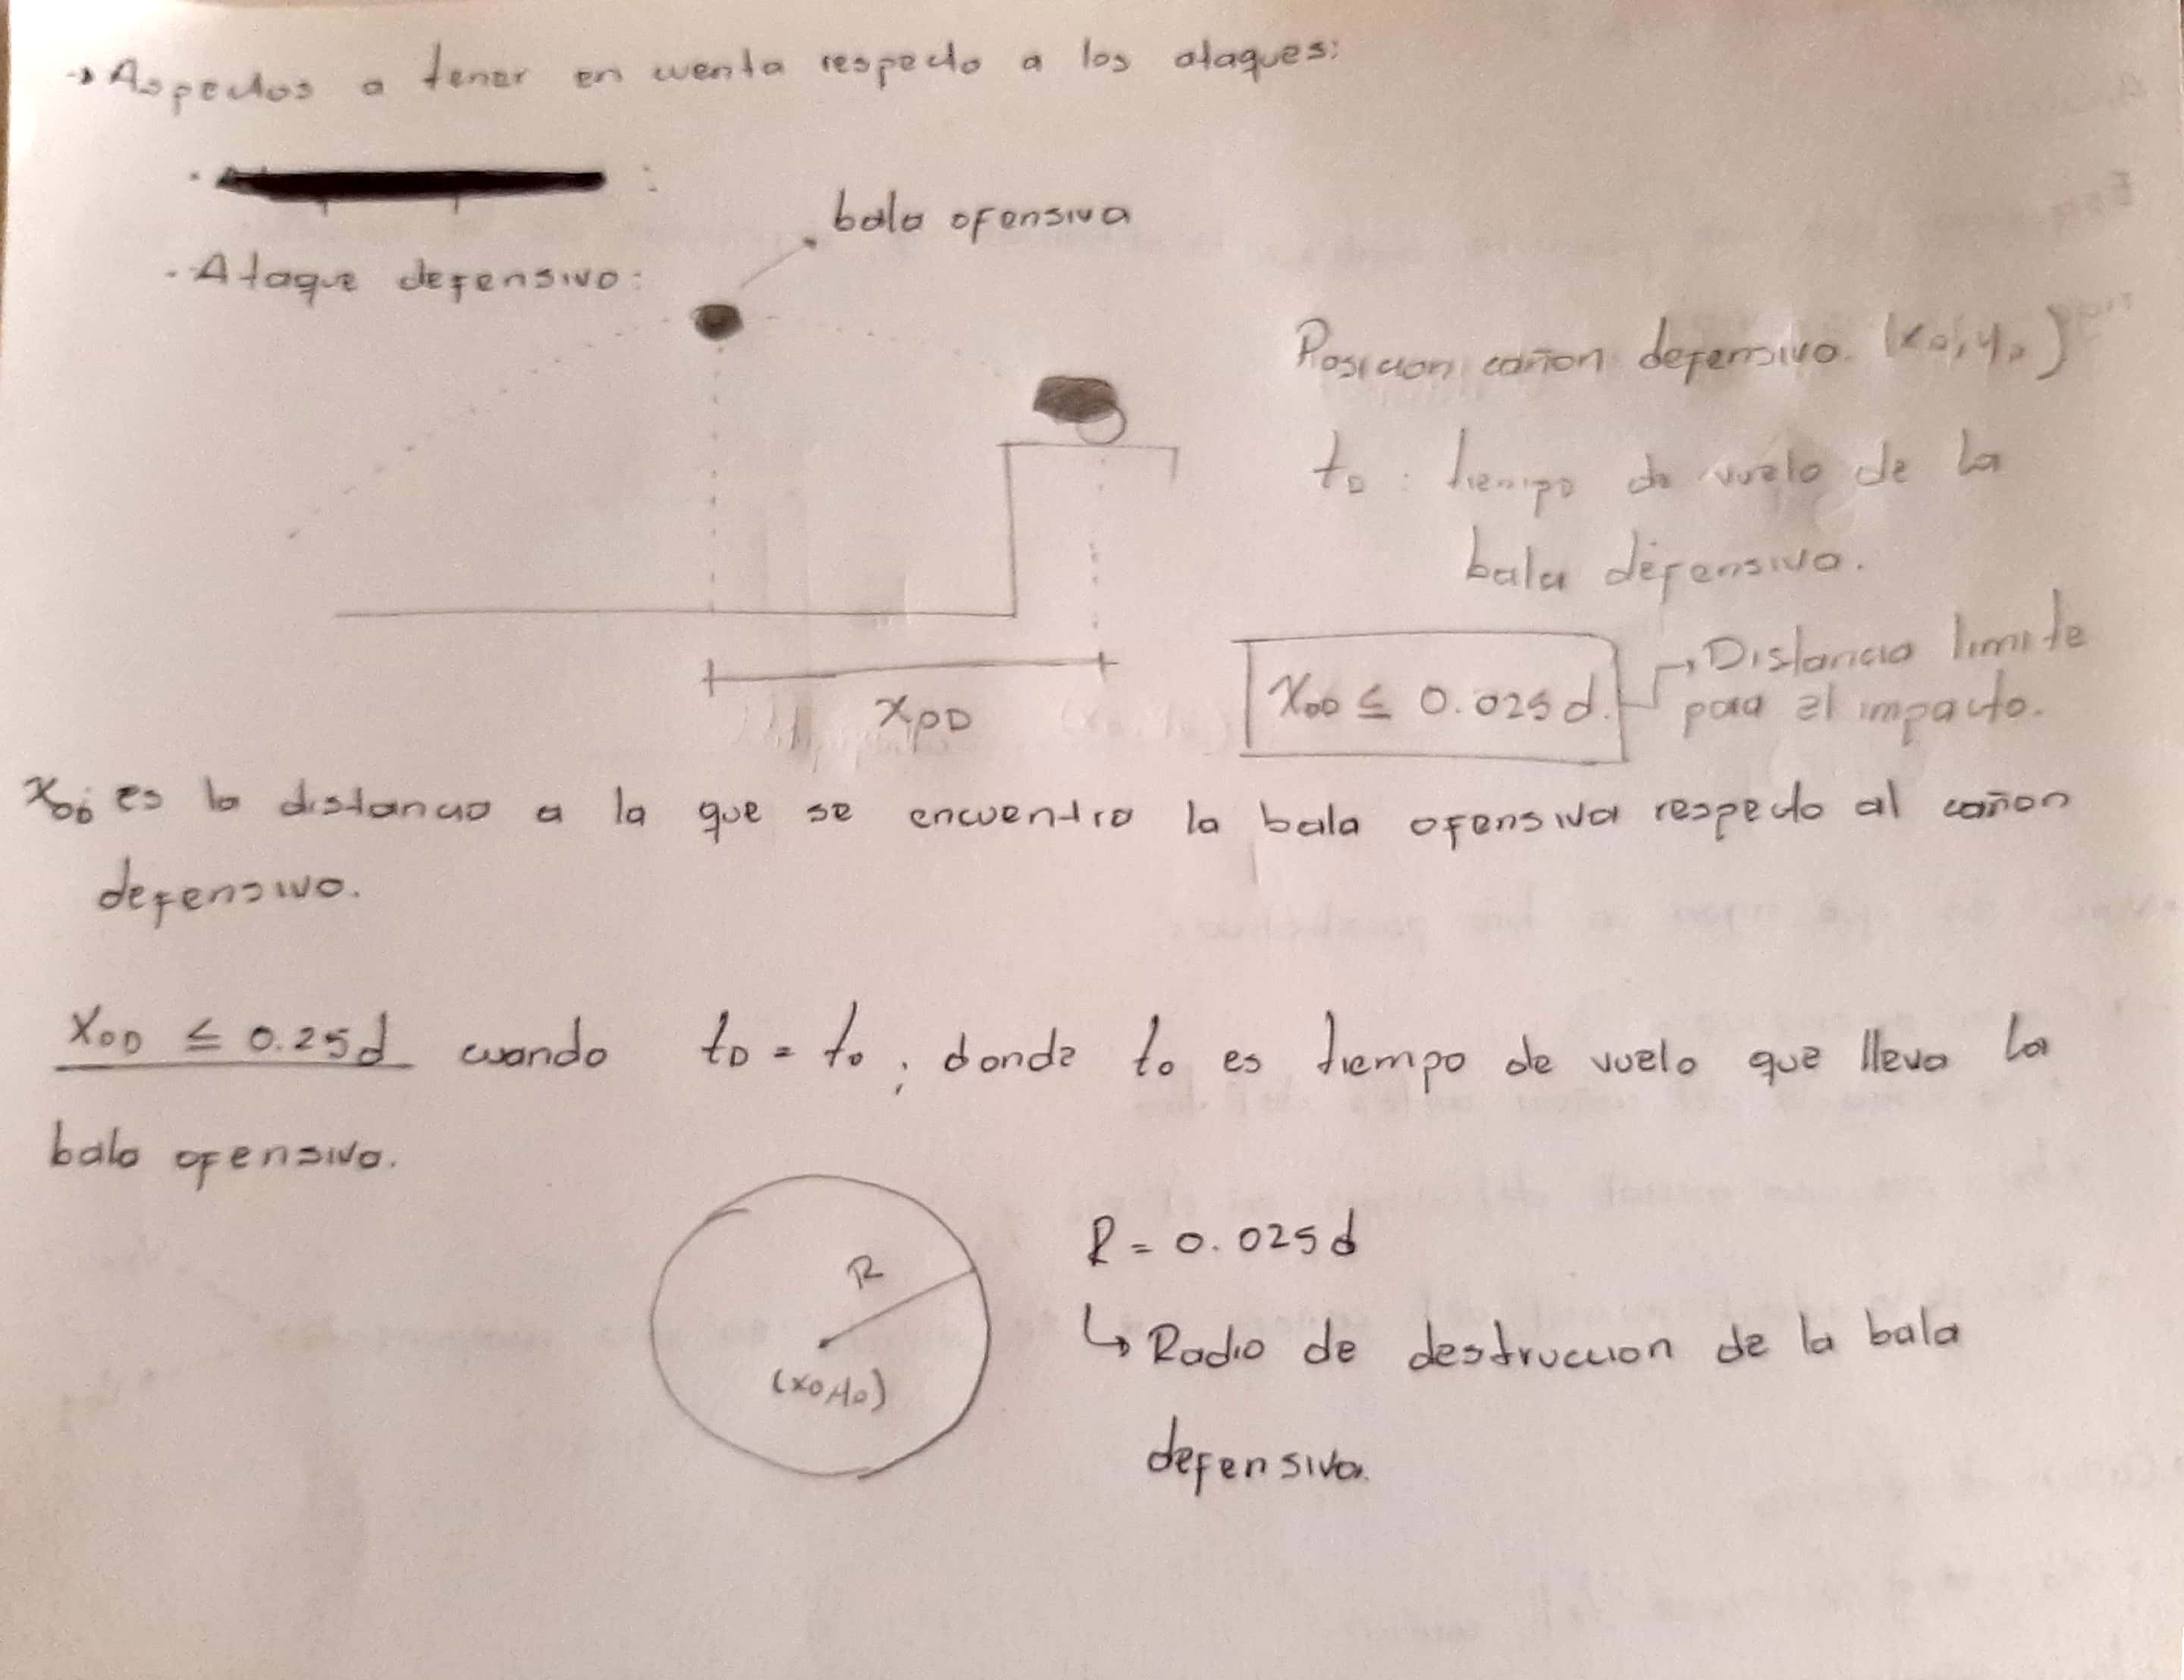 → Aspectos a tener en cuenta respecto a los ataques:
- Ataque defensivo:
bala ofensiva
Posicion cañon defensivo. (x_D, y_D)
t_D : tiempo de vuelo de la
bala defensiva.
x_OD ≤ 0.025d. → Distancia limite
para el impacto.
x_OD
x_OD es la distancia a la que se encuentra la bala ofensiva respecto al cañon
defensivo.
x_OD ≤ 0.25d cuando t_D = t_o ; donde t_o es tiempo de vuelo que lleva la
bala ofensiva.
R
(x_D, y_D)
R = 0.025d
↳ Radio de destruccion de la bala
defensiva.